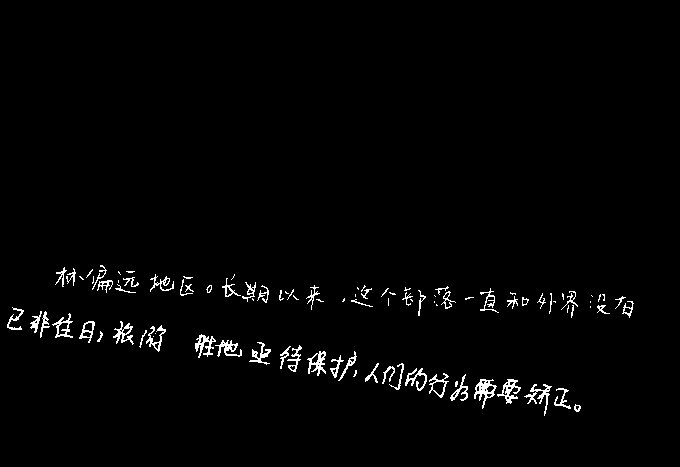 林偏远地区。长期以来,这个部落一直和外界没有
已非住日,旅游 胜地亟待保护,人们的行为需要矫正。